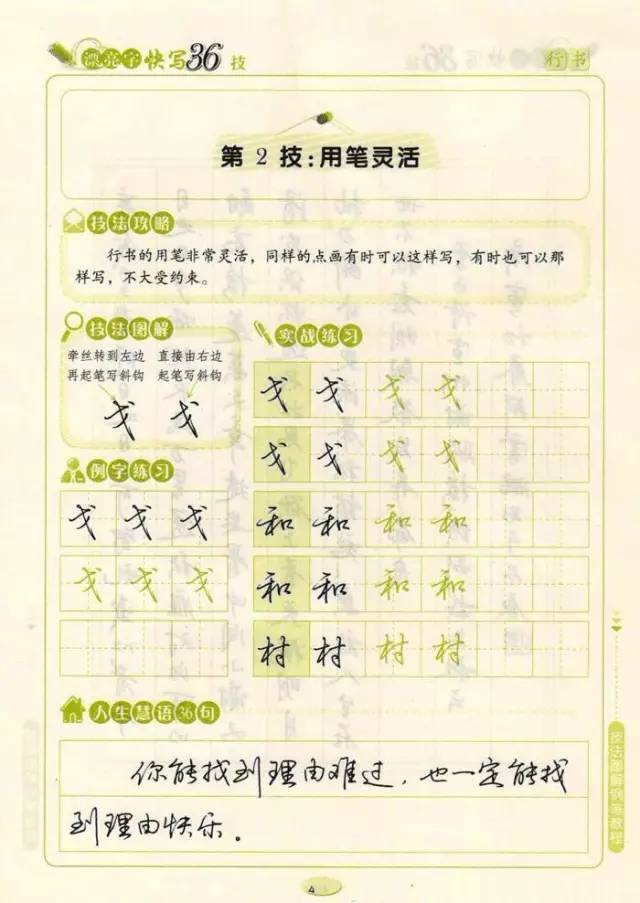 漂亮字快写36技
行书
第2技:用笔灵活
技法攻略
行书的用笔非常灵活，同样的点画有时可以这样写，有时也可以那
样写，不大受约束。
技法图解
牵丝转到左边 直接由右边
再起笔写斜钩 起笔写斜钩
戈 戈
例字练习
戈 戈 戈
戈 戈 戈
实战练习
戈 戈 戈 戈
戈 戈 戈 戈
和 和 和 和
和 和 和 和
村 村 村 村
人生慧语36句
你能找到理由难过，也一定能找
到理由快乐。
技法图解快写教程
4